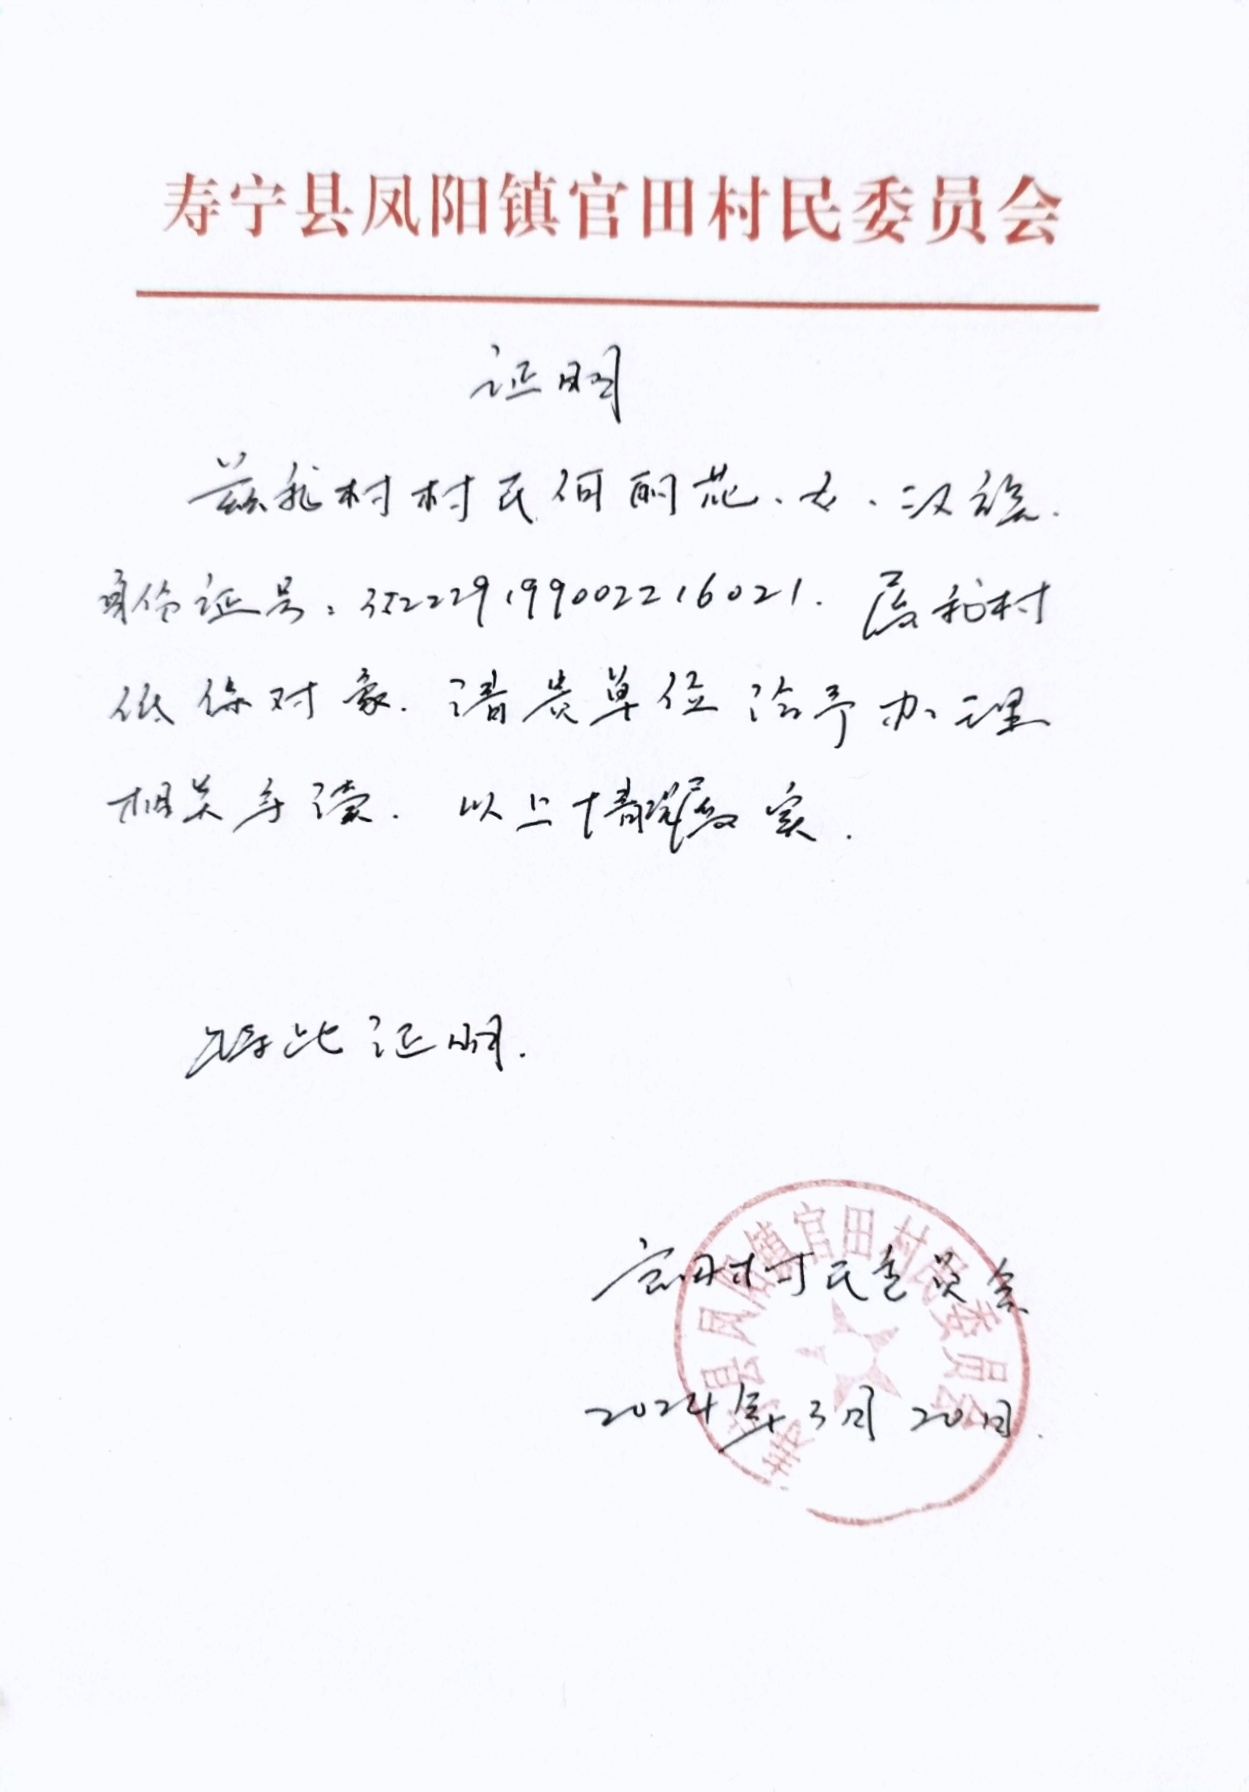 寿宁县凤阳镇官田村民委员会
证明
兹我村村民何丽花、女、汉族.
身份证号:352229199002216021. 属我村
低保对象. 请贵单位给予办理
相关手续. 以上情况属实.
特此证明.
官田村村民委员会
2024年3月20日.
寿宁县凤阳镇官田村民委员会